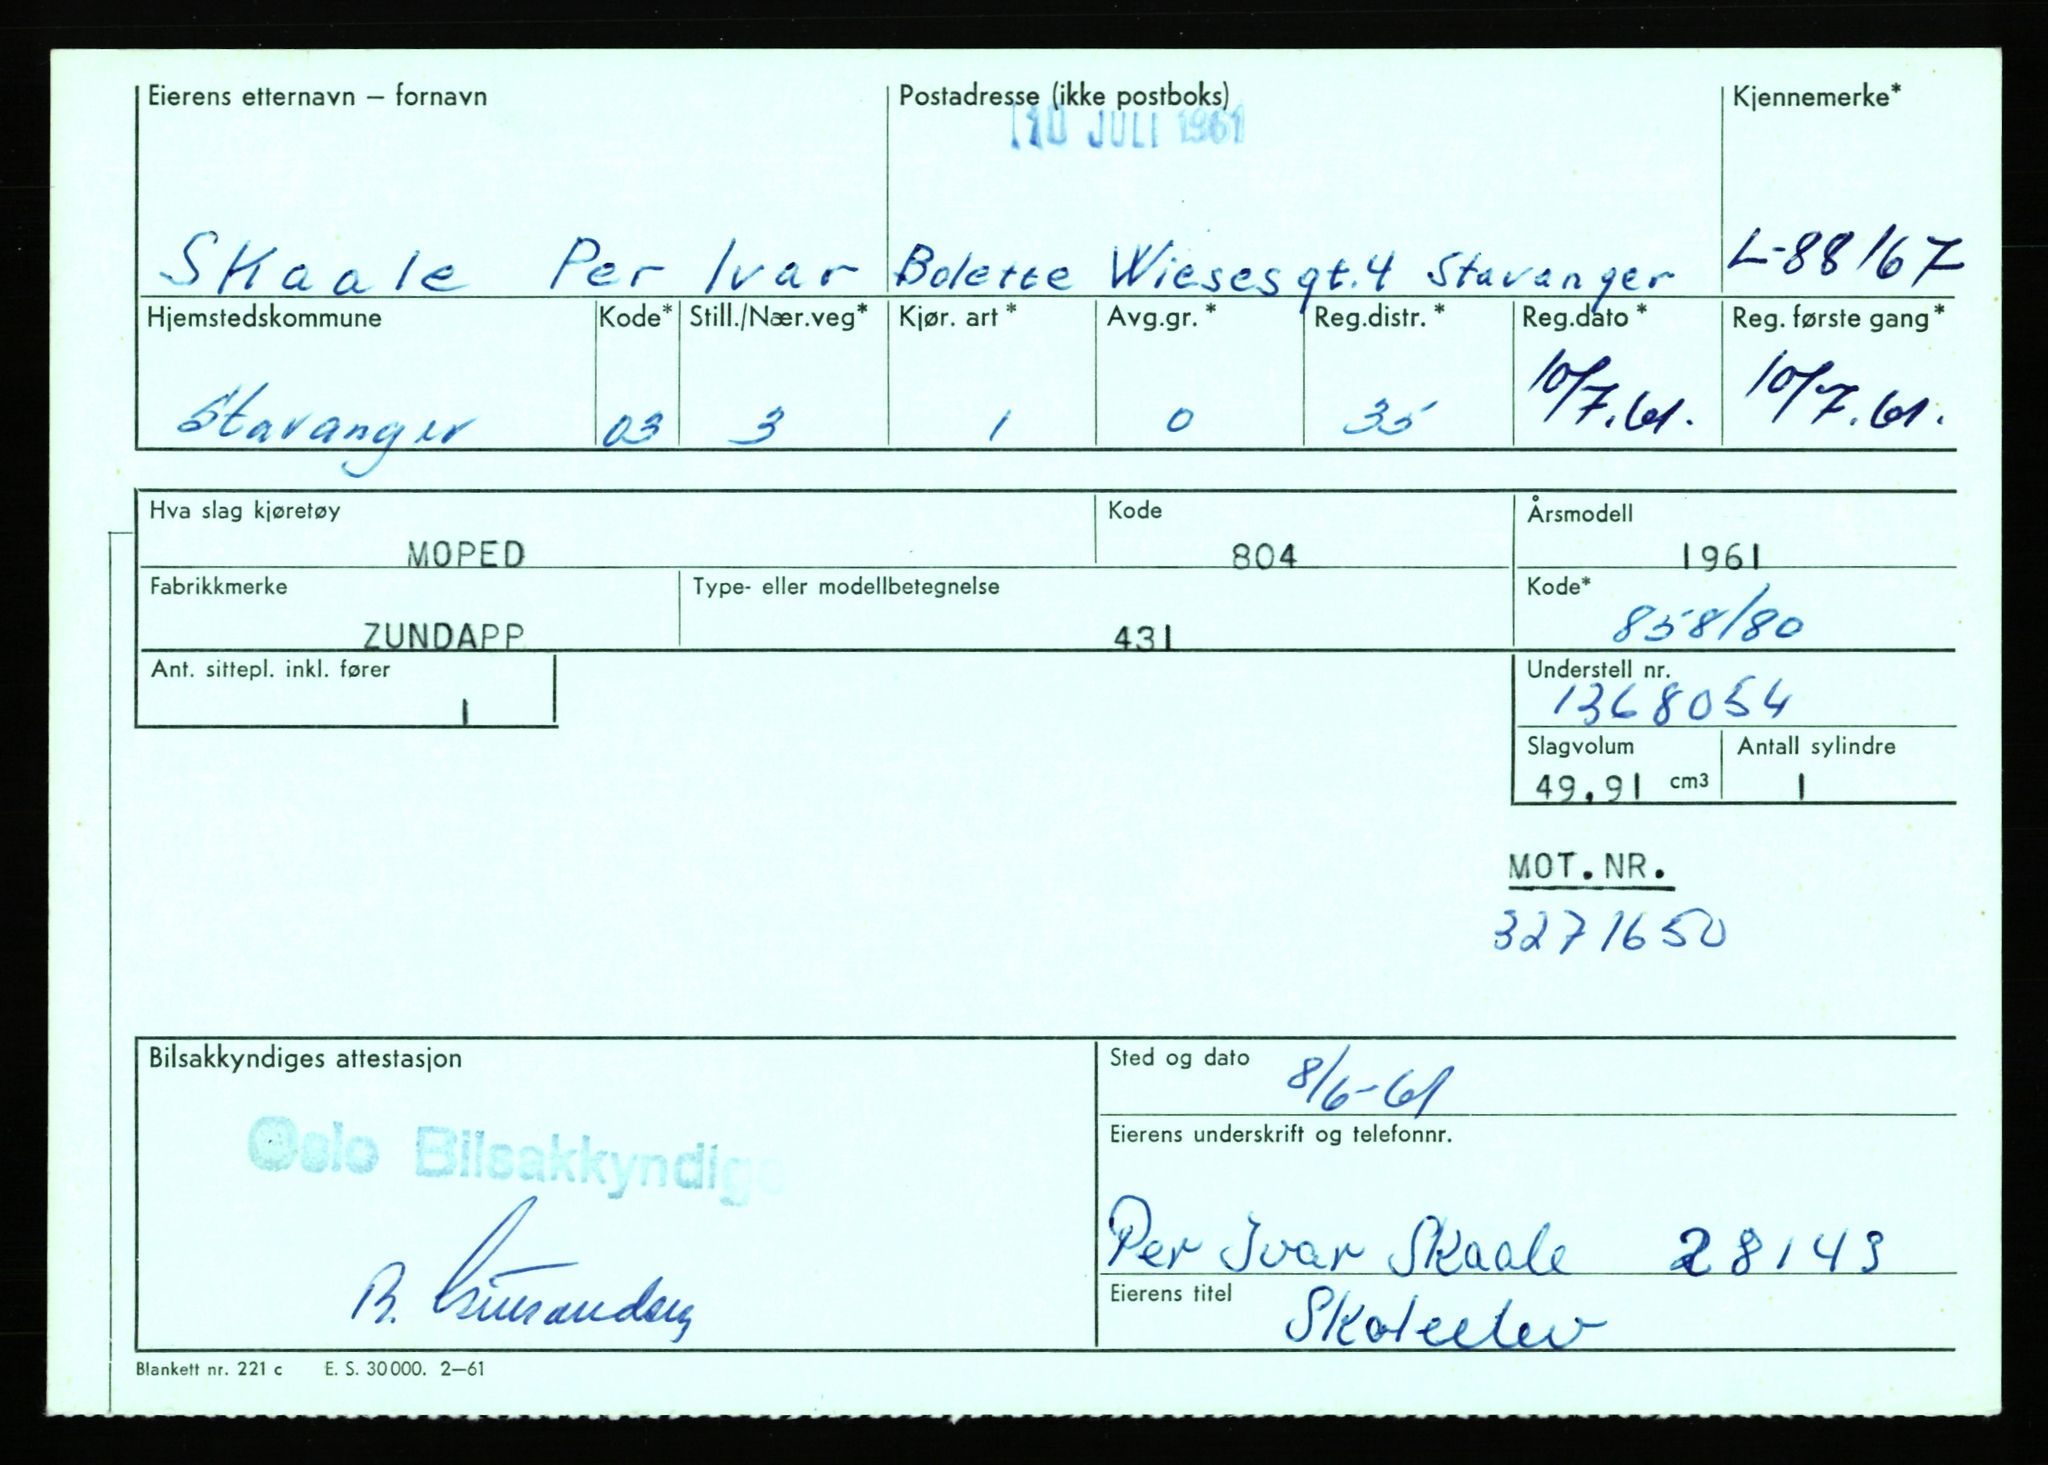 Eierens etternavn – fornavn Postadresse (ikke postboks) Kjennemerke*
10 JULI 1961
Skaale Per Ivar Bolette Wiesesgt. 4 Stavanger L-88167
Hjemstedskommune Kode* Still./Nær.veg* Kjør. art* Avg.gr.* Reg.distr.* Reg.dato* Reg. første gang*
Stavanger 03 3 1 0 35 10/7.61. 10/7.61.
Hva slag kjøretøy Kode Årsmodell
MOPED 804 1961
Fabrikkmerke Type- eller modellbetegnelse Kode*
ZUNDAPP 431 858/80
Ant. sittepl. inkl. fører Understell nr.
1 1368054
Slagvolum Antall sylindre
49,91 cm3 1
MOT.NR.
3271650
Bilsakkyndiges attestasjon Sted og dato 8/6-61
Eierens underskrift og telefonnr.
Oslo Bilsakkyndige
Per Ivar Skaale 28143
Eierens titel Skoleelev
Blankett nr. 221 c E. S. 30000. 2–61